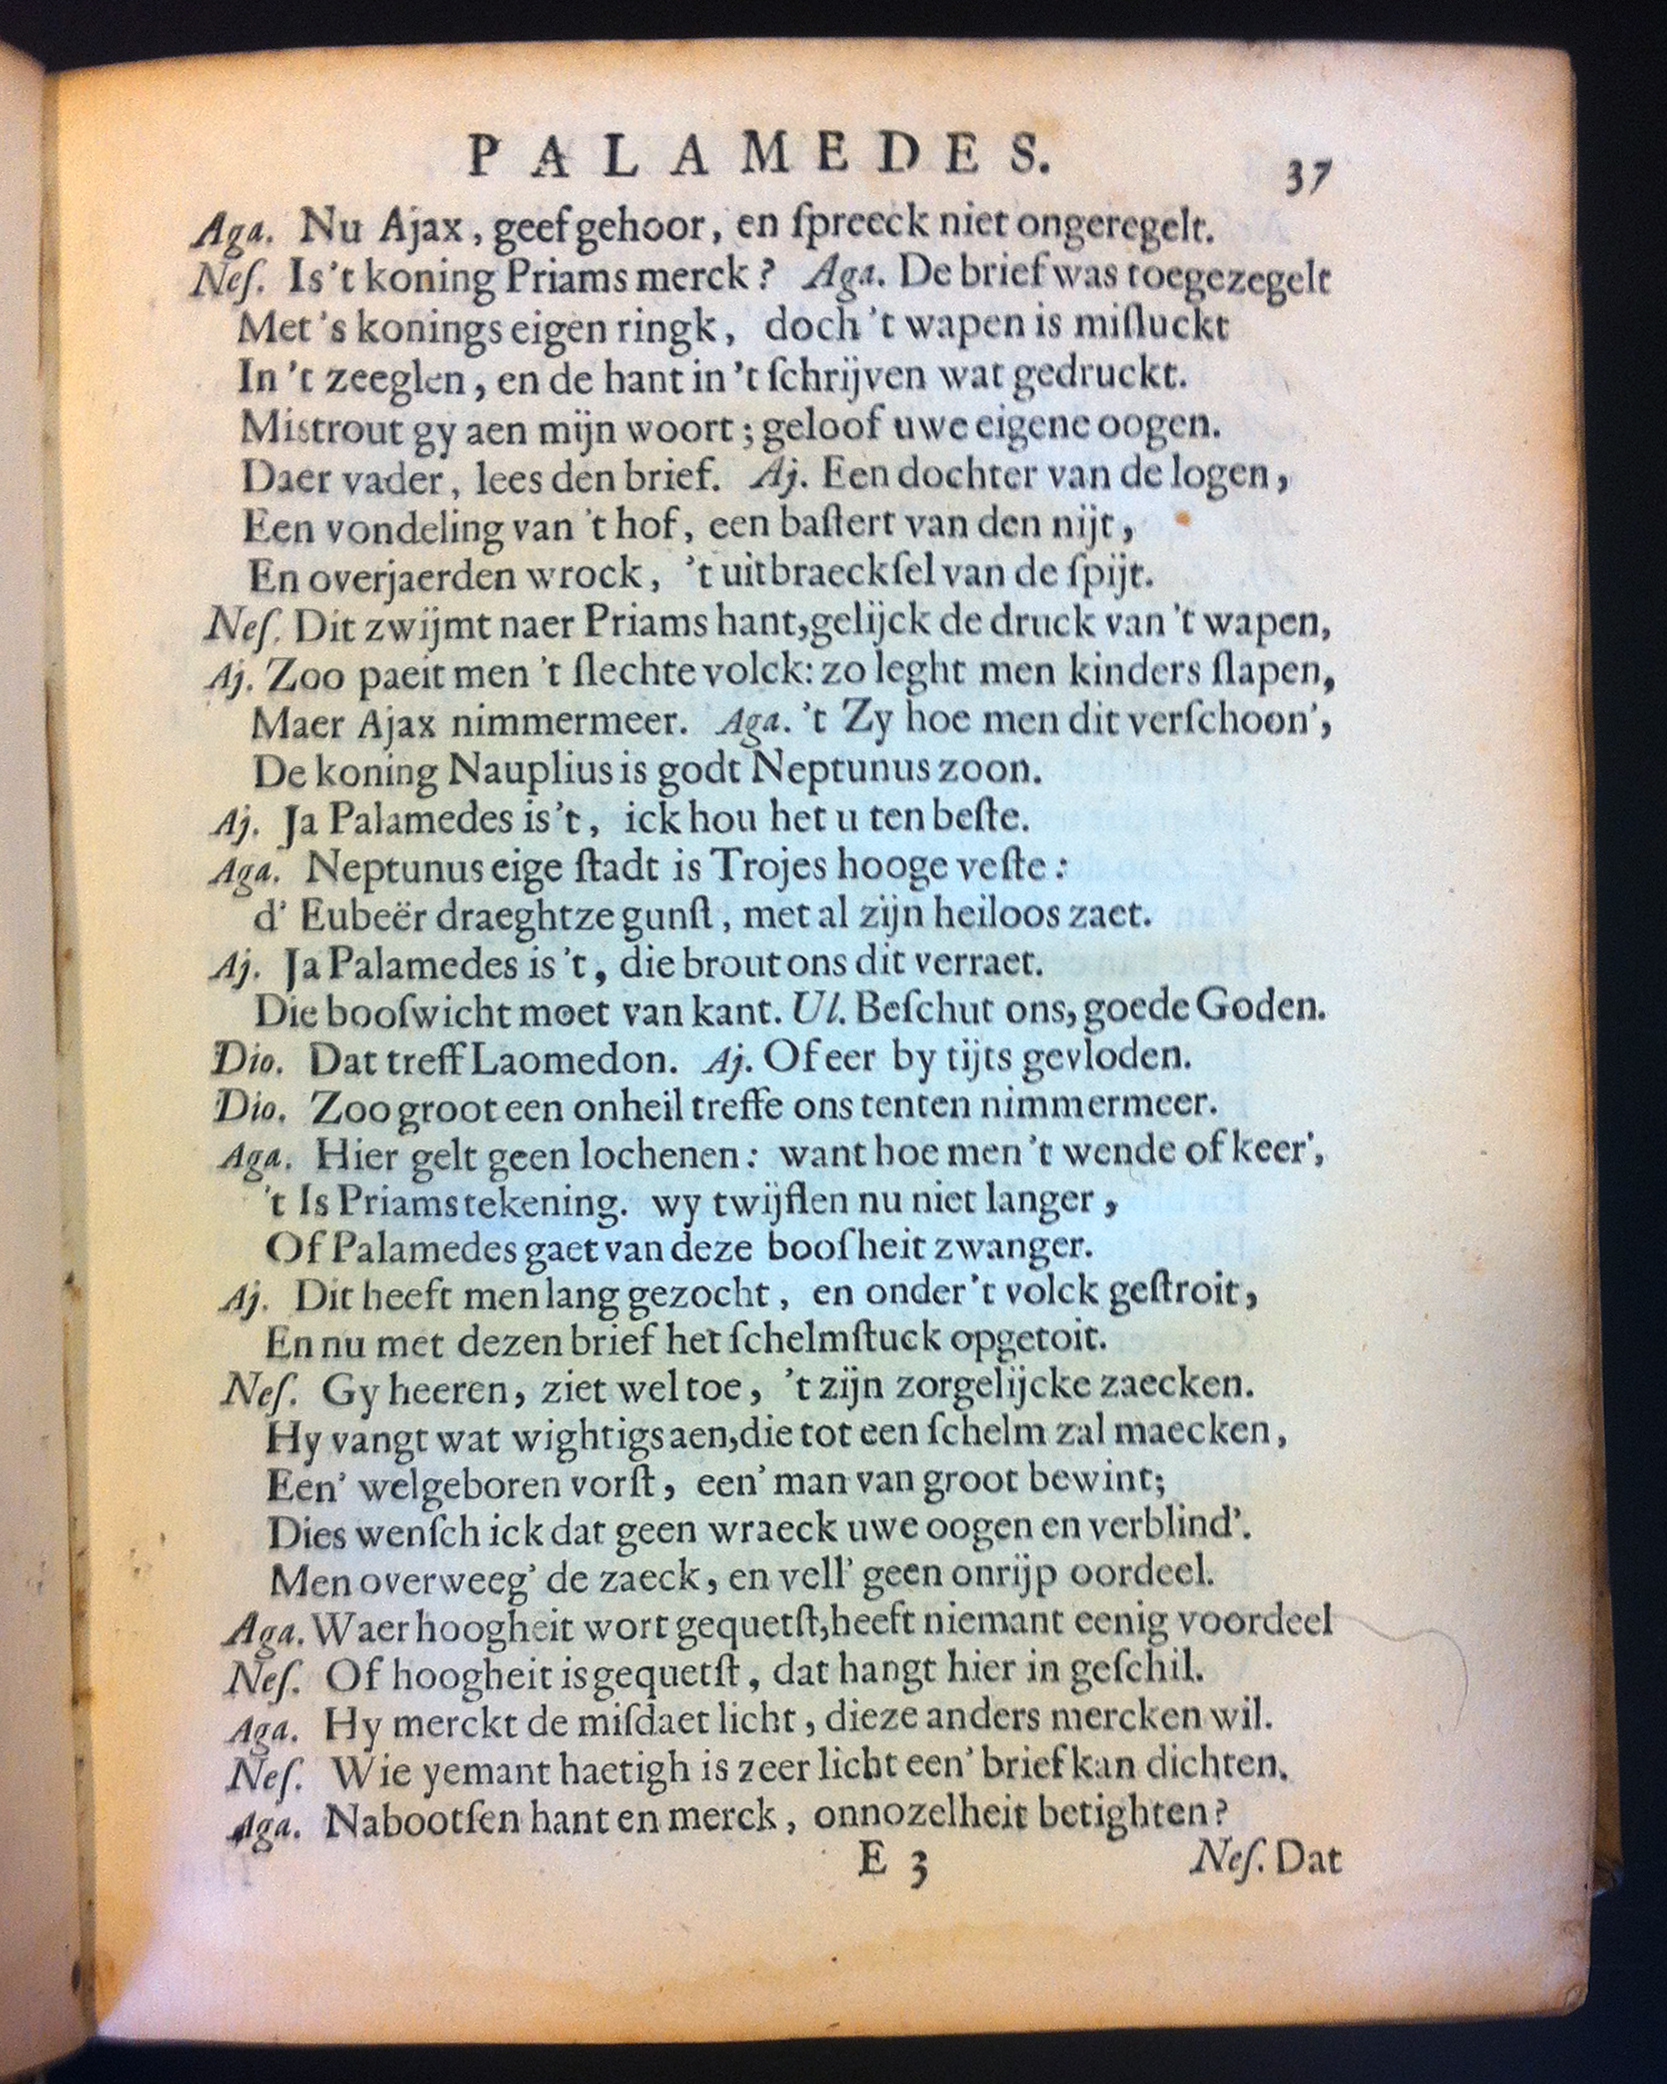 PALAMEDES. 37
Aga. Nu Ajax, geef gehoor, en ſpreeck niet ongeregelt.
Neſ. Is't koning Priams merck? Aga. De brief was toegezegelt
Met 's konings eigen ringk, doch 't wapen is miſluckt
In 't zeeglen, en de hant in 't ſchrijven wat gedruckt.
Mistrout gy aen mijn woort; geloof uwe eigene oogen.
Daer vader, lees den brief. Aj. Een dochter van de logen,
Een vondeling van 't hof, een baſtert van den nijt,
En overjaerden wrock, 't uitbraeckſel van de ſpijt.
Neſ. Dit zwijmt naer Priams hant, gelijck de druck van 't wapen,
Aj. Zoo paeit men 't ſlechte volck: zo leght men kinders ſlapen,
Maer Ajax nimmermeer. Aga. 't Zy hoe men dit verſchoon',
De koning Nauplius is godt Neptunus zoon.
Aj. Ja Palamedes is't, ick hou het u ten beſte.
Aga. Neptunus eige ſtadt is Trojes hooge veſte:
d' Eubeër draeght ze gunſt, met al zijn heiloos zaet.
Aj. Ja Palamedes is 't, die brout ons dit verraet.
Die booſwicht moet van kant. Ul. Beſchut ons, goede Goden.
Dio. Dat treff Laomedon. Aj. Of eer by tijts gevloden.
Dio. Zoo groot een onheil treffe ons tenten nimmermeer.
Aga. Hier gelt geen lochenen: want hoe men 't wende of keer',
't Is Priams tekening. wy twijflen nu niet langer,
Of Palamedes gaet van deze boofheit zwanger.
Aj. Dit heeft men lang gezocht, en onder't volck geſtroit,
En nu met dezen brief het ſchelmſtuck opgetoit.
Neſ. Gy heeren, ziet wel toe, 't zijn zorgelijcke zaecken.
Hy vangt wat wightigs aen, die tot een ſchelm zal maecken,
Een' welgeboren vorſt, een' man van groot bewint;
Dies wenſch ick dat geen wraeck uwe oogen en verblind'.
Men overweeg' de zaeck, en vell' geen onrijp oordeel.
Aga. Waer hoogheit wort gequetſt, heeft niemant eenig voordeel
Neſ. Of hoogheit is gequetſt, dat hangt hier in geſchil.
Aga. Hy merckt de miſdaet licht, die ze anders mercken wil.
Neſ. Wie yemant haetigh is zeer licht een' brief kan dichten.
Aga. Nabootſen hant en merck, onnozelheit betighten?
E 3 Neſ. Dat